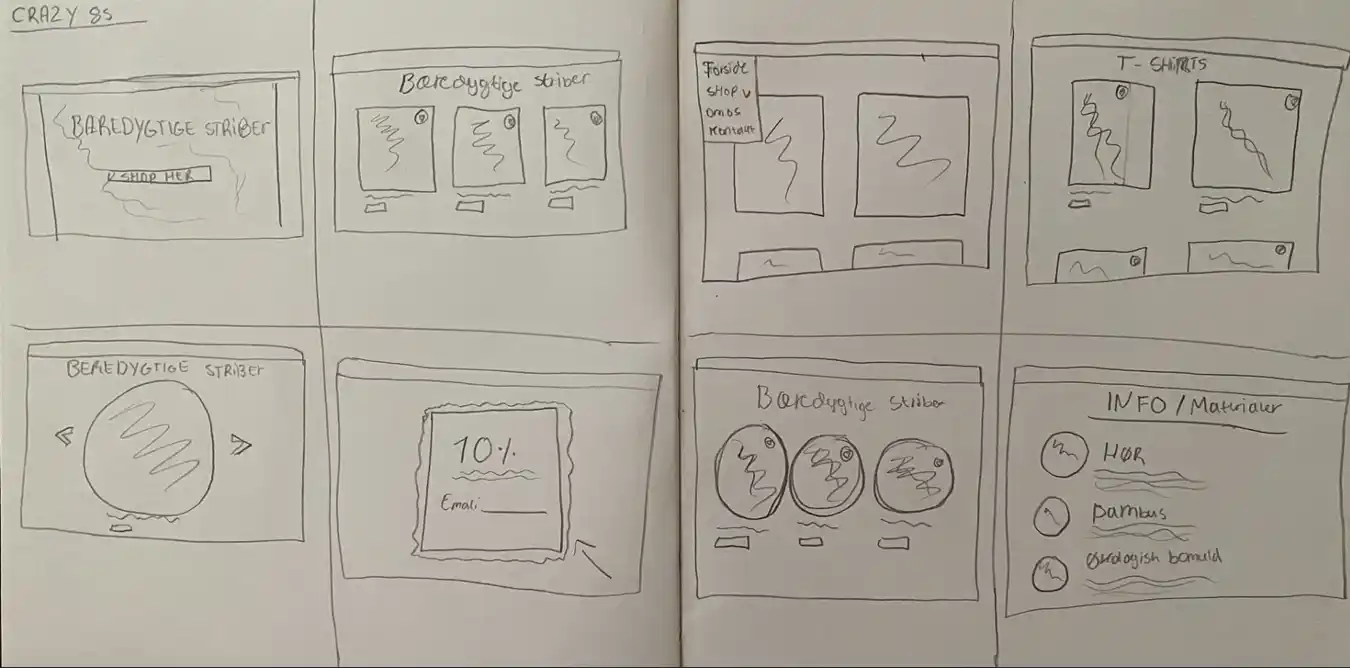 CRAZY 8s
BÆREDYGTIGE STRIBER
SHOP HER
Bæredygtige striber
Forside
SHOP v
Om os
Kontakt
T-SHIRTS
BEREDYGTIGE STRIBER
10%
Email:
Bæredygtige striber
INFO / Materialer
HØR
Bambus
Økologish bomuld